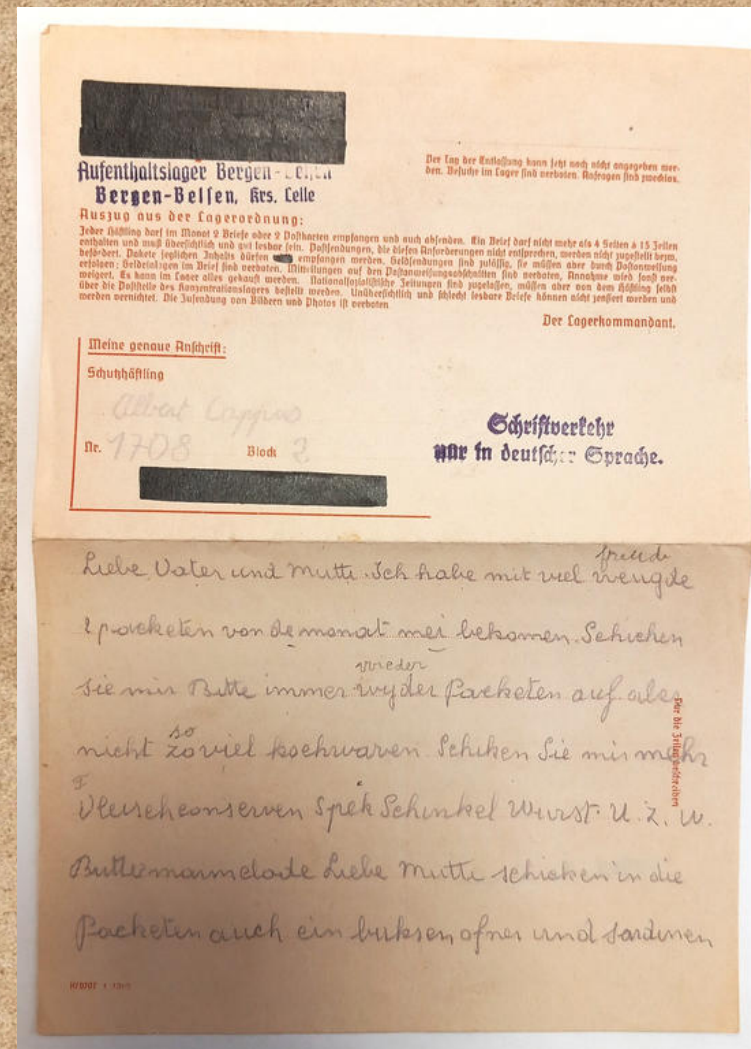 Aufenthaltslager Bergen-Belsen
Bergen-Belsen, Krs. Celle
Der Tag der Entlassung kann jetzt noch nicht angegeben wer-
den. Besuche im Lager sind verboten. Anfragen sind zwecklos.
Auszug aus der Lagerordnung:
Jeder Häftling darf im Monat 2 Briefe oder 2 Postkarten empfangen und auch absenden. Ein Brief darf nicht mehr als 4 Seiten à 15 Zeilen
enthalten und muß übersichtlich und gut lesbar sein. Postsendungen, die diesen Anforderungen nicht entsprechen, werden nicht zugestellt bezw.
befördert. Pakete jeglichen Inhalts dürfen empfangen werden. Geldsendungen sind zulässig, sie müssen aber durch Postanweisung
erfolgen; Geldeinlagen im Brief sind verboten. Mitteilungen auf den Postanweisungsabschnitten sind verboten, Annahme wird sonst ver-
weigert. Es kann im Lager alles gekauft werden. Nationalsozialistische Zeitungen sind zugelassen, müssen aber von dem Häftling selbst
über die Poststelle des Konzentrationslagers bestellt werden. Unübersichtlich und schlecht lesbare Briefe können nicht zensiert werden und
werden vernichtet. Die Zusendung von Bildern und Photos ist verboten
Der Lagerkommandant.
Meine genaue Anschrift:
Schutzhäftling
Albert Cappus
Nr. 1708 Block 2
Schriftverkehr
nur in deutscher Sprache.
freude
Liebe Vater und Mutte. Ich habe mit viel vreugde
2 packeten von de monat mei bekomen. Schicken
wieder
sie mir Bitte immer wyder Packeten auf. aber
so
nicht zo viel kochwaren. Schiken Sie mir mehr
F
Vleischconserven Spek Schinkel Wurst. U. Z. W.
Butter marmelade Liebe Mutte schicken in die
Packeten auch ein buksen ofner und Sardinen